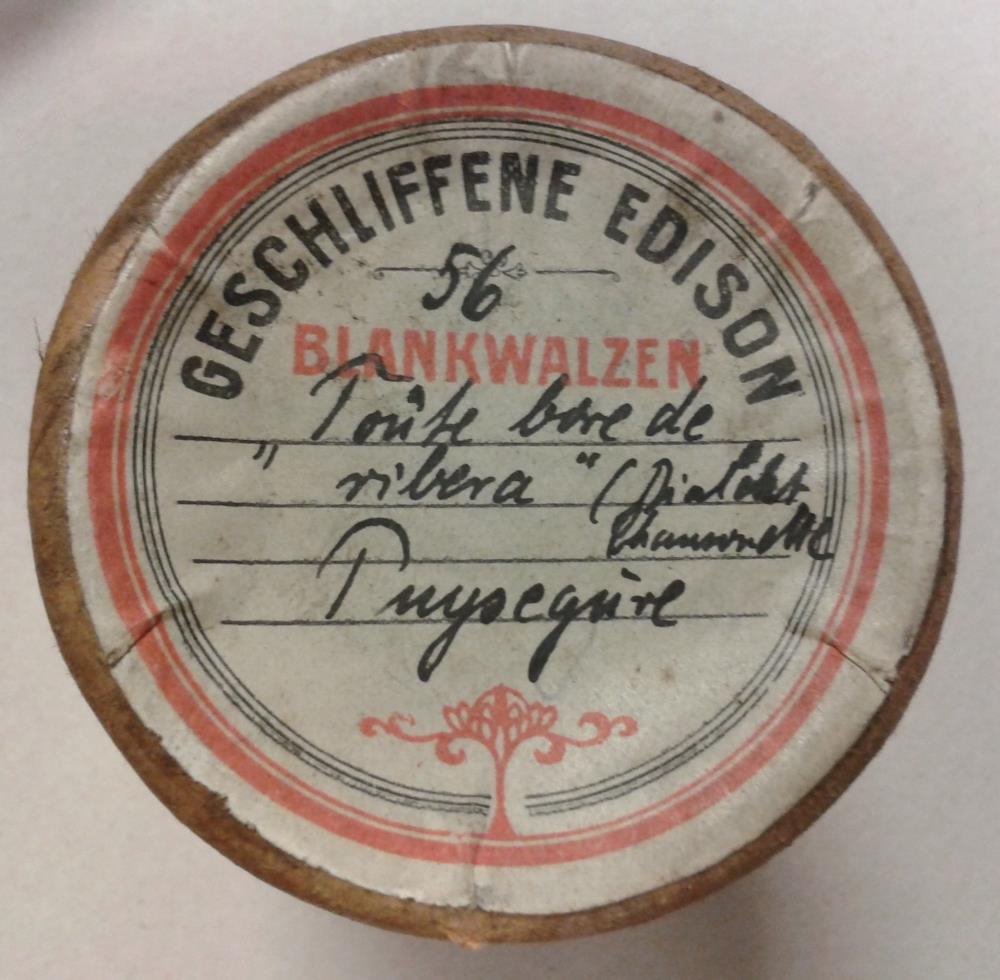 GESCHLIFFENE EDISON
56
BLANKWALZEN
Toûte bore de
„ ribera “ (Dialekt
Chansonette
Puysegùre